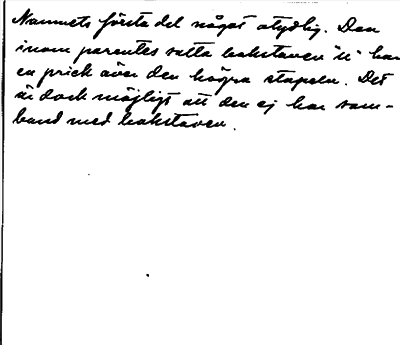 Namnets första del något otydlig. Den
inom parentes satta bokstaven "u" har
en prick över den högra stapeln. Det
är dock möjligt att den ej har sam-
band med bokstaven.